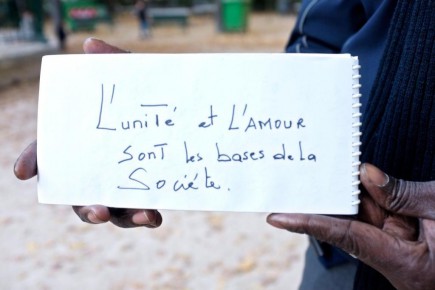 L'unité et L'AMOUR
sont les bases de la
Société.